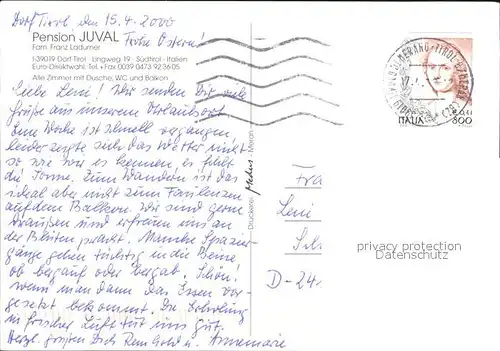 Dorf Tirol den 15.4.2000
Pension JUVAL Frohe Ostern!
Fam. Franz Ladurner
I-39019 Dorf Tirol · Lingweg 19 · Südtirol · Italien
Euro-Direktwahl: Tel. + Fax 0039 0473 92 36 05
Alle Zimmer mit Dusche, WC und Balkon
Liebe Leni! Wir senden Dir viele
Grüße aus unserem Urlaubsort.
Eine Woche ist schnell vergangen,
leider zeigte sich das Wetter nicht
so wie wir es kennen, es fehlt
die Sonne. Zum Wandern ist das
ideal aber nicht zum Faulenzen
auf dem Balkon. Wir sind gerne
draußen und erfreuen uns an
der Blütenpracht. Manche Spazier-
gänge gehen tüchtig in die Beine
ob bergauf oder bergab. Schön!
wenn man dann das Essen vor-
gesetzt bekommt. Die Erholung
in frischer Luft tut uns gut.
Herzl. Grüßen Dich Reinhold u. Annemarie
Druckerei Medus - Meran
ITALIA 800
Fra
Leni
D-24
privacy protection
Datenschutz